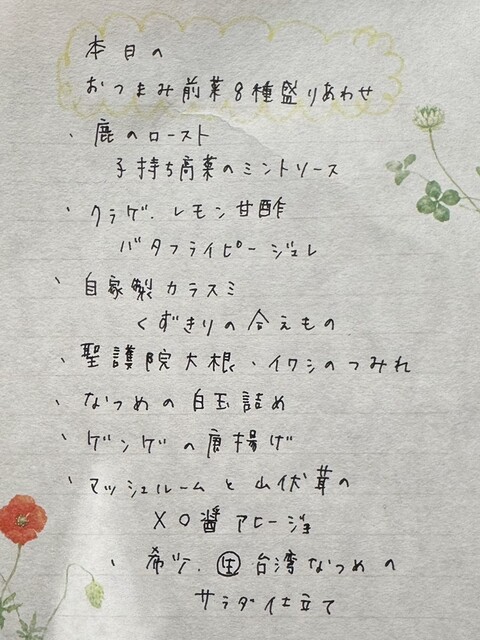 本日の
おつまみ前菜8種盛りあわせ
、鹿のロースト
子持ち高菜のミントソース
、クラゲ、レモン甘酢
バタフライピージュレ
、自家製カラスミ
くずきりの合えもの
、聖護院大根、イワシのつみれ
、なつめの白玉詰め
、ゲンゲの唐揚げ
、マッシュルームと山伏茸の
XO醤アヒージョ
、希少、㊤台湾なつめの
サラダ仕立て